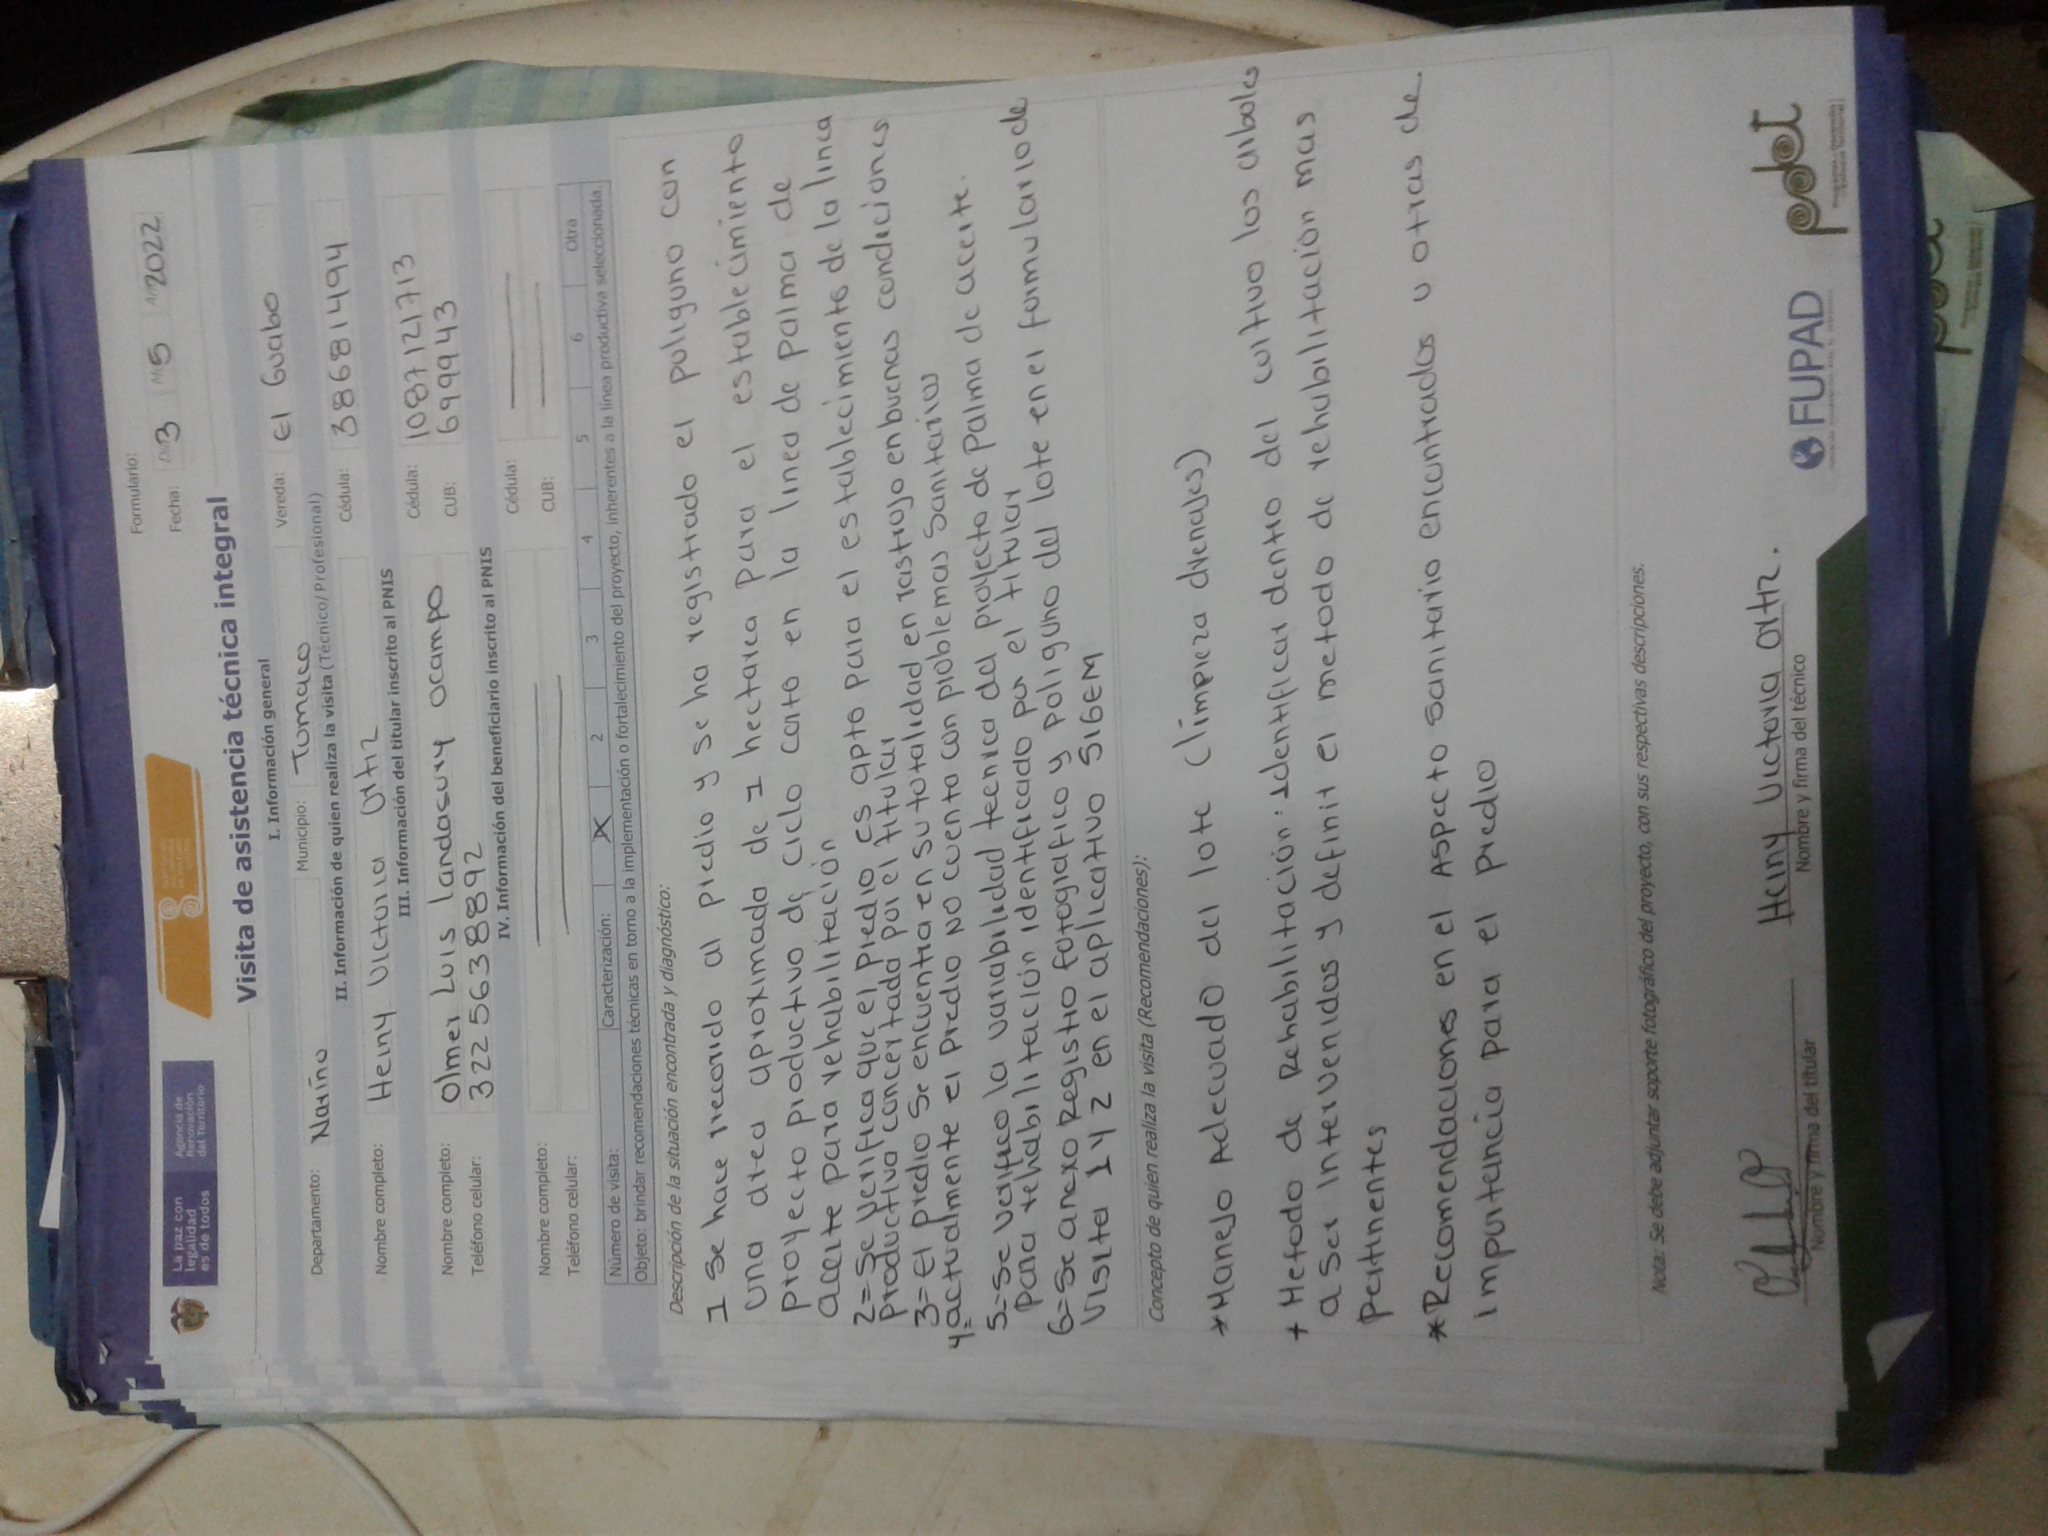 La paz con
legalidad
es de todos
Agencia de
Renovación
del Territorio
Formulario:
Fecha: Día 3 Mes 5 Año 2022
Visita de asistencia técnica integral
I. Información general
Departamento: Nariño Municipio: Tumaco Vereda: El Guabo
II. Información de quien realiza la visita (Técnico/Profesional)
Nombre completo: Heiny Victoria Ortiz Cédula: 38681494
III. Información del titular inscrito al PNIS
Nombre completo: Olmer Luis landasury ocampo Cédula: 1087121713
Teléfono celular: 3225638892 CUB: 699943
IV. Información del beneficiario inscrito al PNIS
Nombre completo: Cédula:
Teléfono celular: CUB:
Número de visita: Caracterización: X 2 3 4 5 6 Otra
Objeto: brindar recomendaciones técnicas en torno a la implementación o fortalecimiento del proyecto, inherentes a la línea productiva seleccionada.
Descripción de la situación encontrada y diagnóstico:
1 Se hace recorido al predio y se ha registrado el poliguno con
una area aproximada de 1 hectarea para el establecimiento
proyecto productivo de ciclo corto en la linea de palma de
aceite para rehabilitación
2= Se verifica que el predio es apto para el establecimiento de la linea
productiva concertada por el titular
3= El predio se encuentra en su totalidad en rastrojo en buenas condiciones
4= actualmente el predio no cuenta con problemas sanitarios
5= Se verifico la variabilidad tecnica del proyecto de Palma de aceite.
para rehabilitación identificado por el titular
6= Se anexo Registro fotografico y poliguno del lote en el formulario de
visita 1 y 2 en el aplicativo SIGEM
Concepto de quien realiza la visita (Recomendaciones):
* Manejo Adecuado del lote (limpieza drenajes)
+ Metodo de Rehabilitación: Identificar dentro del cultivo los arboles
a ser intervenidos y definir el metodo de rehabilitación mas
pertinentes
* Recomendaciones en el Aspecto sanitario encontrados u otras de
importancia para el predio
Nota: Se debe adjuntar soporte fotográfico del proyecto, con sus respectivas descripciones.
Heiny Victoria Ortiz.
Nombre y firma del titular Nombre y firma del técnico
FUPAD
pdet